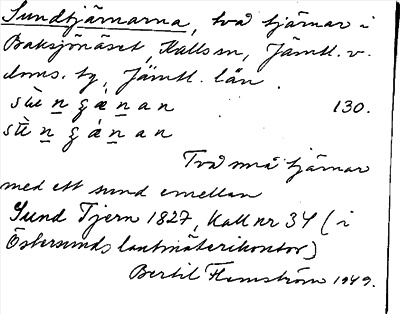 Sundtjärnarna, två tjärnar i
Baksjönäset, Kalls sn, Jämtl. v.
doms. tg, Jämtl. län.
130.
Två små tjärnar
med ett sund emellan
Sund Tjern 1827, Kall nr 34 (i
Östersunds lantmäterikontor)
Bertil Flemström 1949.